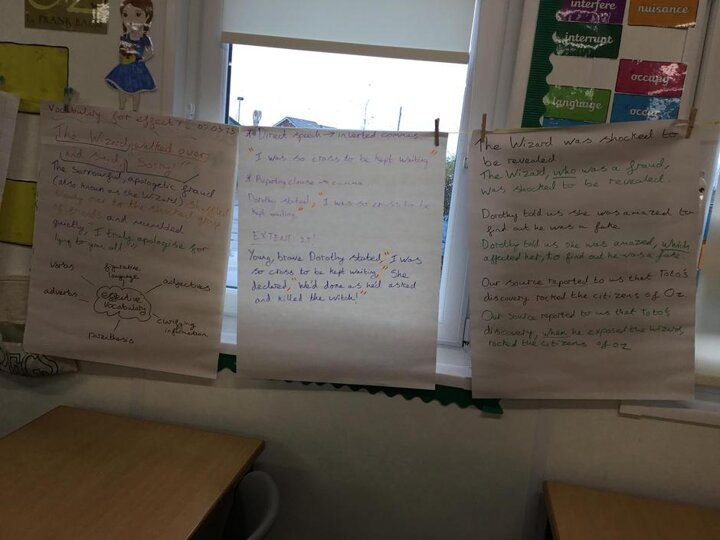 L. FRANK BAUM
interfere
nuisance
interrupt
language
occupy
occur
Vocabulary for effect
The Wizard walked over
and said, "Sorry!"
The sorrowful, apologetic fraud
(also known as the Wizard) shuffled
over to the shocked group
of friends and mumbled
quietly, I truly apologise for
lying to you all
verbs
figurative
language
adjectives
adverbs
effective
vocabulary
clarifying
information
parenthesis
Direct speech → inverted commas
"I was so cross to be kept waiting"
Reporting clause → comma
Dorothy stated, "I was so cross to be
kept waiting"
EXTENT: 25
Young, brave Dorothy stated, "I was
so cross to be kept waiting" She
declared, "We'd done as he'd asked
and killed the witch!"
The Wizard was shocked to
be revealed.
The Wizard, who was a fraud,
was shocked to be revealed.
Dorothy told us she was amazed to
find out he was a fake.
Dorothy told us she was amazed, which
affected her, to find out he was a fake.
Our source reported to us that Toto's
discovery rocked the citizens of Oz
Our source reported to us that Toto's
discovery, when he exposed the Wizard,
rocked the citizens of Oz